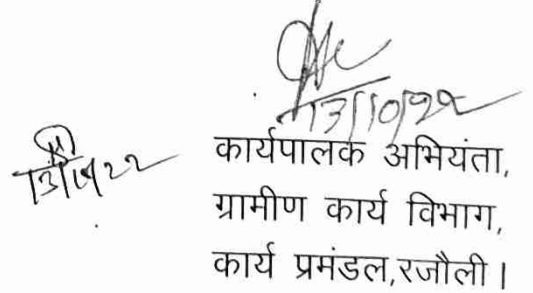 13/10/22
13/10/22
कार्यपालक अभियंता,
ग्रामीण कार्य विभाग,
कार्य प्रमंडल,रजौली।